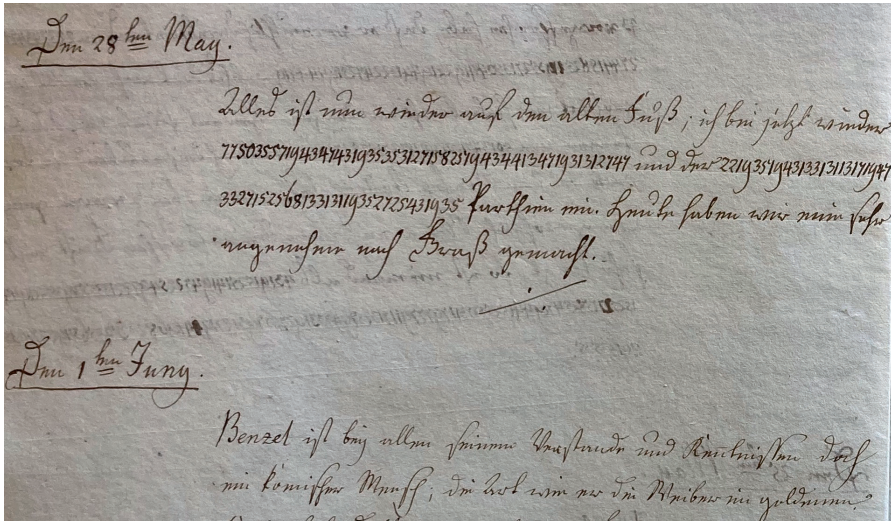 Den 28ten May.
Alles ist nun wieder auf den alten Fuß; ich bei jetzt wieder
775035571943474319353531271582579434413471931312747 und der 221935194313313113171947
332715256813313119352725431935 Parthien ein. Heute haben wir eine sehr
angenehme nach gemacht.
Den 1ten Juny.
Benzel ist bey allen seinem Verstande und Kenntnissen doch
ein komischer Mensch; die Art wie er die Weiber im goldenen